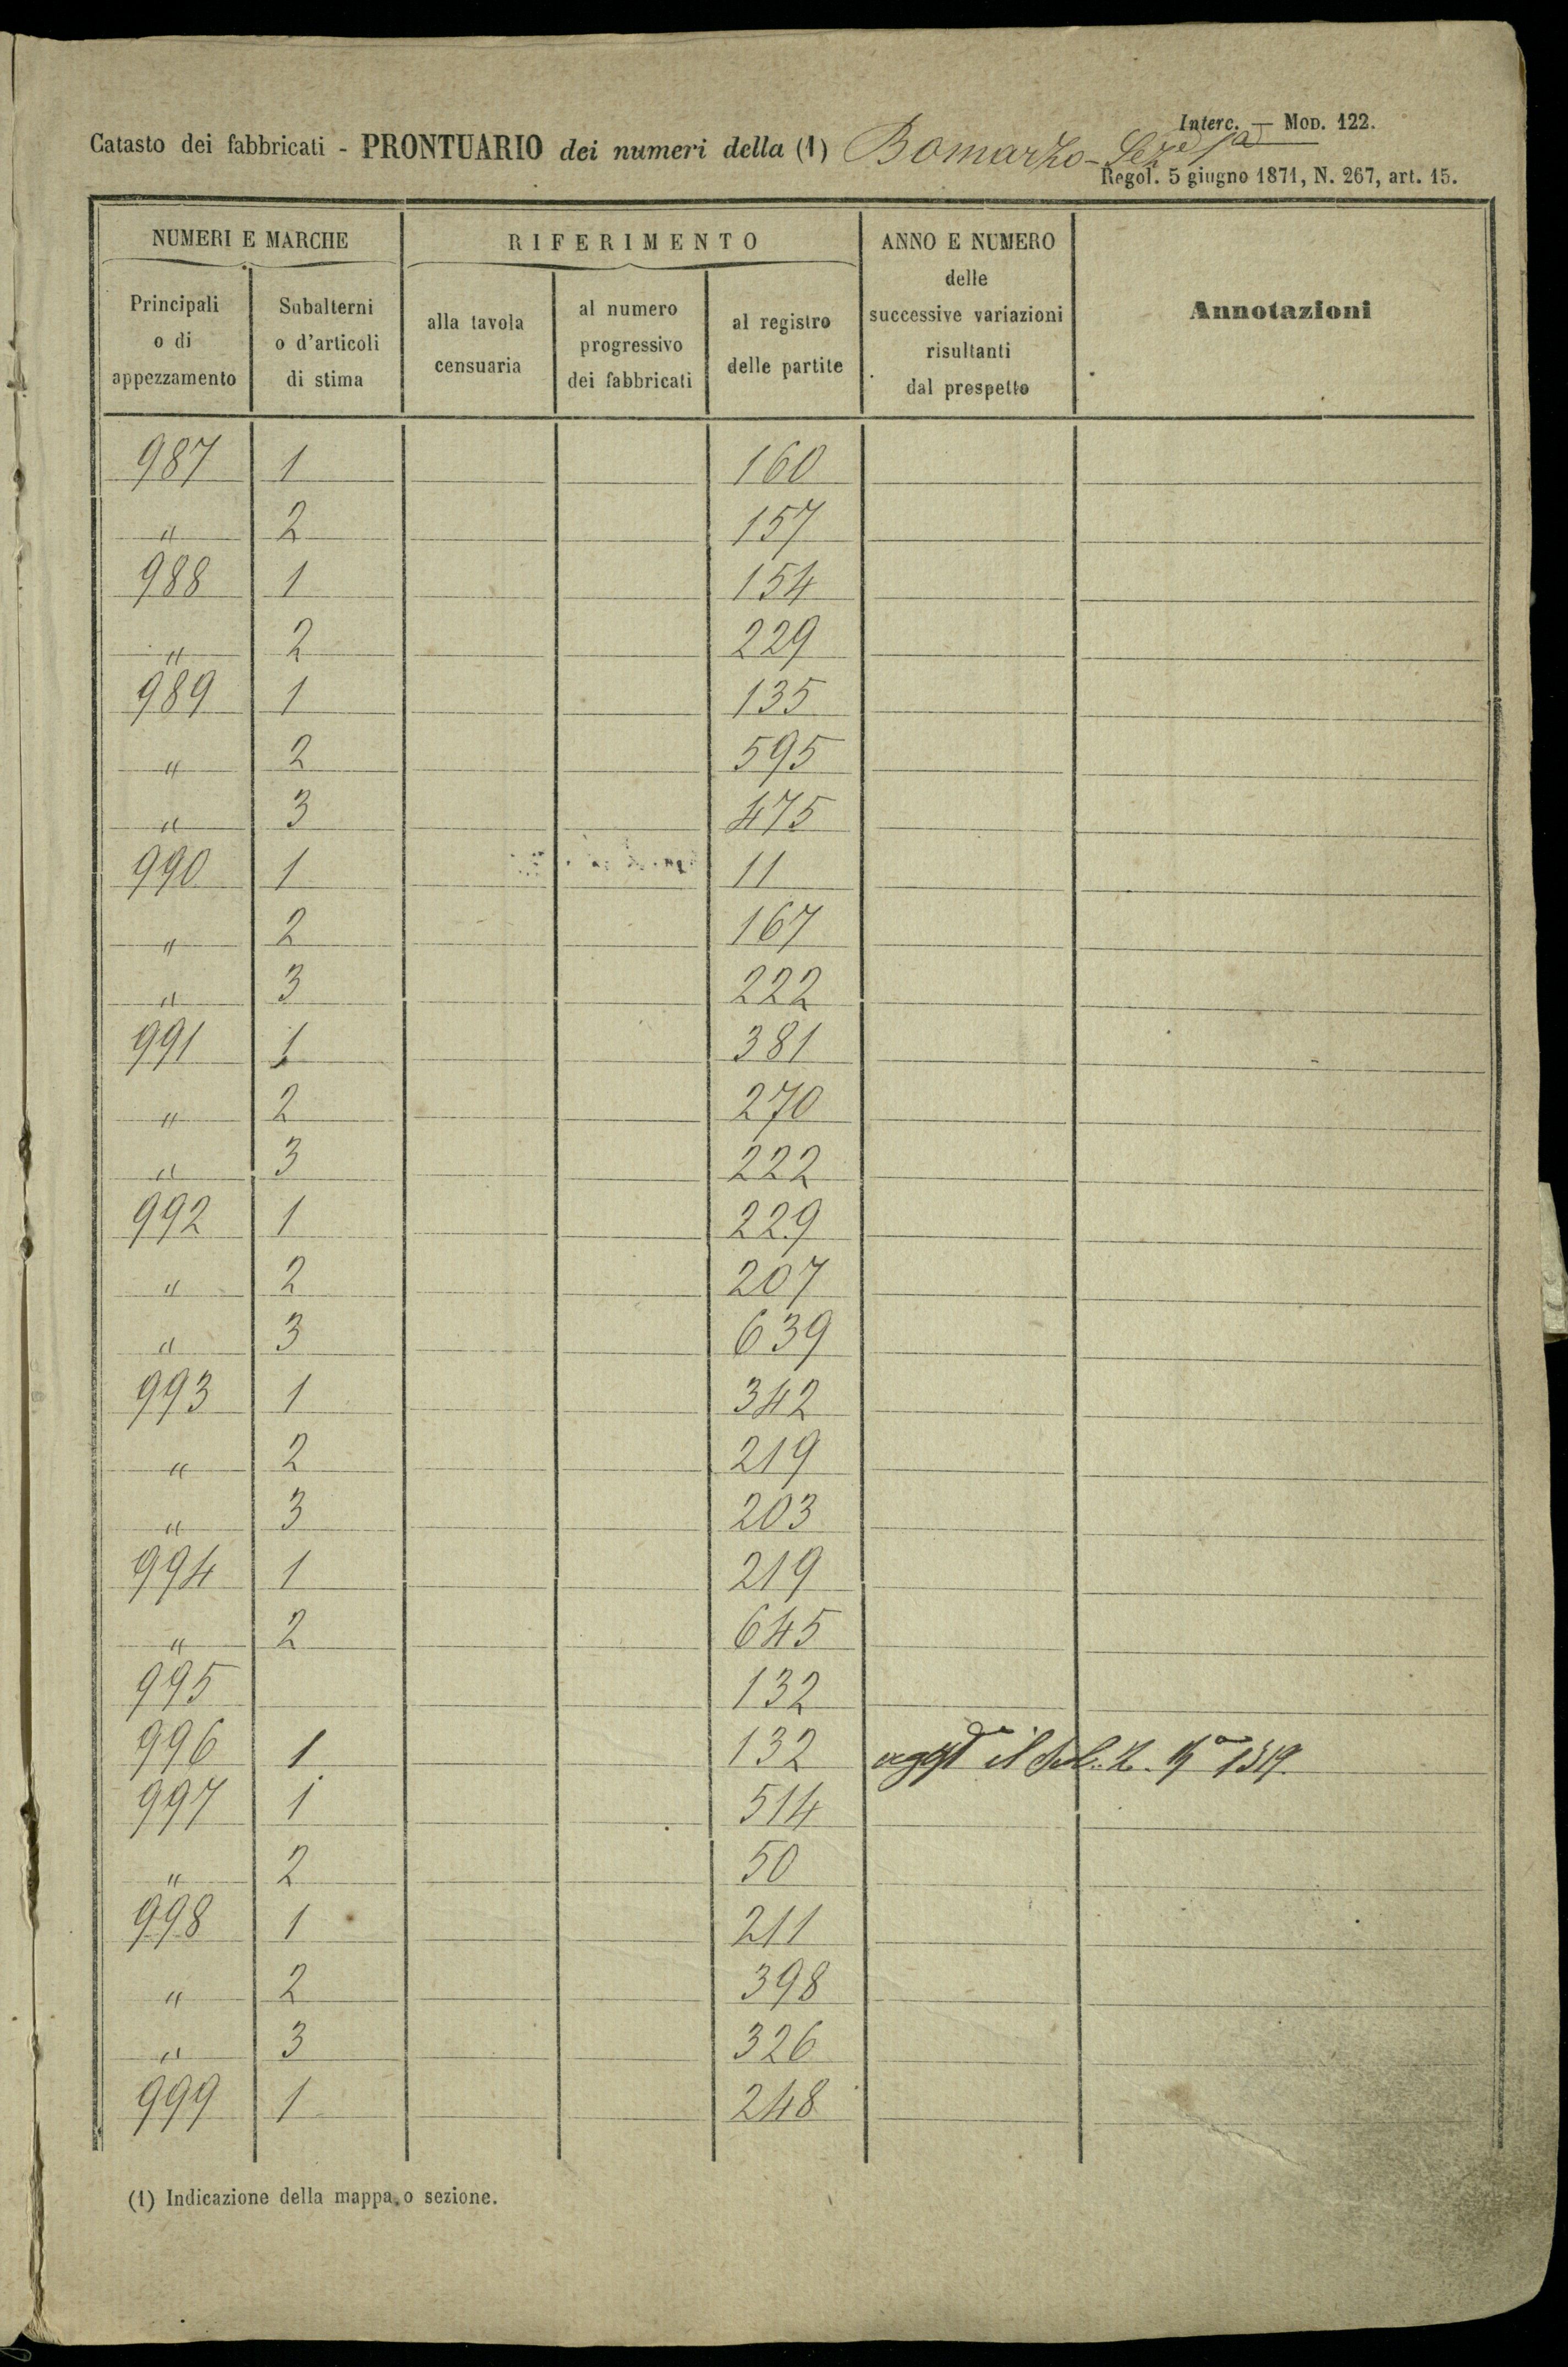 Interc. — MOD. 122.
Catasto dei fabbricati - PRONTUARIO dei numeri della (1) Bomarzo - Sez.e 1a
Regol. 5 giugno 1871, N. 267, art. 15.
NUMERI E MARCHE RIFERIMENTO ANNO E NUMERO delle successive variazioni risultanti dal prospetto Annotazioni
Principali o di appezzamento Subalterni o d'articoli di stima alla tavola censuaria al numero progressivo dei fabbricati al registro delle partite
987 1 160
" 2 157
988 1 154
" 2 229
989 1 135
" 2 595
" 3 475
990 1 11
" 2 167
" 3 222
991 1 381
" 2 270
" 3 222
992 1 229
" 2 207
" 3 639
993 1 342
" 2 219
" 3 203
994 1 219
" 2 645
995 132
996 1 132 il
997 1 514
" 2 50
998 1 211
" 2 398
" 3 326
999 1 248
(1) Indicazione della mappa o sezione.